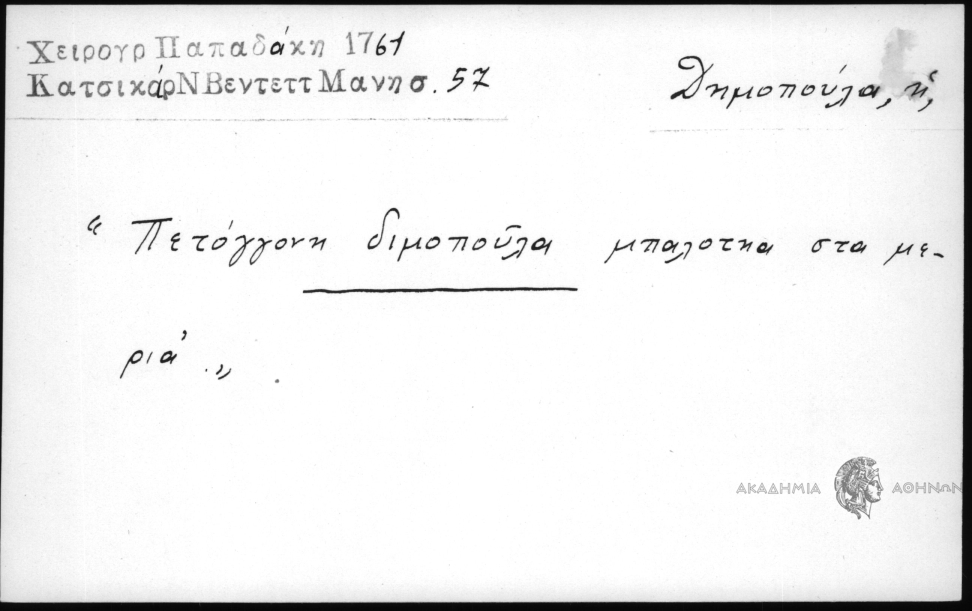 Χειρογρ Παπαδάκη 1761
Κατσικάρ Ν Βεντεττ Μανησ. 57
Δημοπούλα, ἡ,
“ Πετόγγονη διμοποῦλα μπαλοτηα στα με-
ριά .„
ΑΚΑΔΗΜΙΑ ΑΘΗΝΩΝ